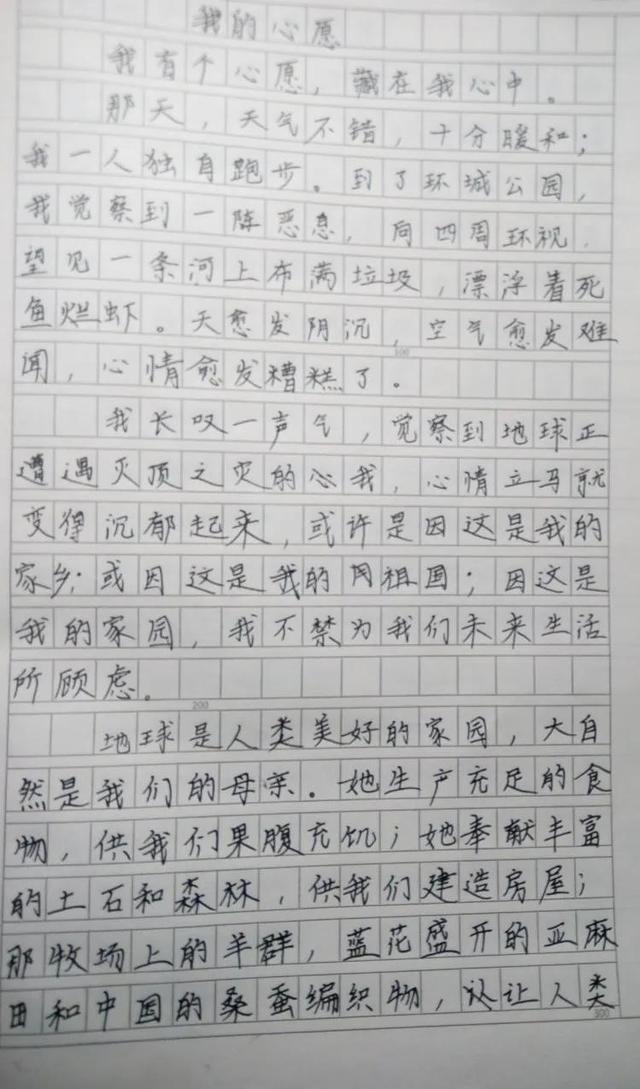 我的心愿
我有个心愿，藏在我心中。
那天，天气不错，十分暖和；
我一人独自跑步。到了环城公园，
我觉察到一阵恶息，向四周环视，
望见一条河上布满垃圾，漂浮着死
鱼烂虾。天愈发阴沉，空气愈发难
闻，心情愈发糟糕了。
100
我长叹一声气，觉察到地球正
遭遇灭顶之灾的心我，心情立马就
变得沉郁起来，或许是因这是我的
家乡；或因这是我的祖国；因这是
我的家园，我不禁为我们未来生活
所顾虑。
200
地球是人类美好的家园，大自
然是我们的母亲。她生产充足的食
物，供我们果腹充饥；她奉献丰富
的土石和森林，供我们建造房屋；
那牧场上的羊群，蓝花盛开的亚麻
田和中国的桑蚕编织物，让人类
300